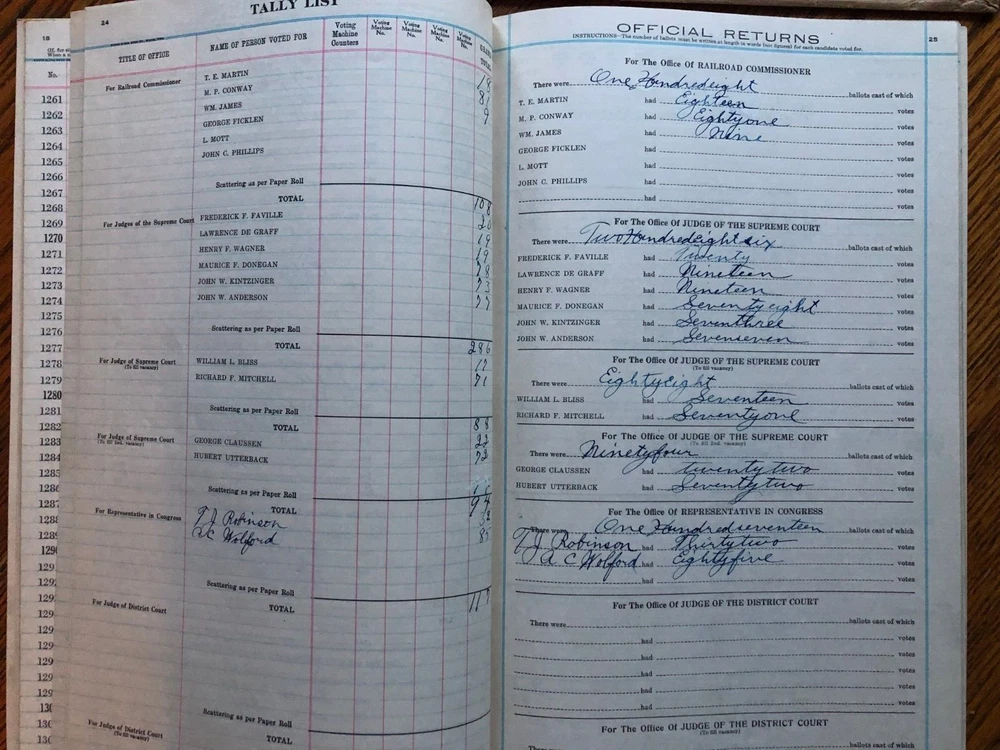 18
No.
1261
1262
1263
1264
1265
1266
1267
1268
1269
1270
1271
1272
1273
1274
1275
1276
1277
1278
1279
1280
1281
1282
1283
1284
1285
1286
1287
1288
1289
24
TALLY LIST
TITLE OF OFFICE NAME OF PERSON VOTED FOR Voting Machine Counters Voting Machine No. Voting Machine No. Voting Machine No. Voting Machine No.
For Railroad Commissioner T. E. MARTIN 18
M. P. CONWAY 81
WM. JAMES 9
GEORGE FICKLEN
L. MOTT
JOHN C. PHILLIPS
Scattering as per Paper Roll
TOTAL 108
For Judges of the Supreme Court FREDERICK F. FAVILLE 20
LAWRENCE DE GRAFF 19
HENRY F. WAGNER 19
MAURICE F. DONEGAN 78
JOHN W. KINTZINGER 73
JOHN W. ANDERSON 77
Scattering as per Paper Roll
TOTAL 286
For Judge of Supreme Court WILLIAM L. BLISS 17
(To fill vacancy)
RICHARD F. MITCHELL 71
Scattering as per Paper Roll
TOTAL 88
For Judge of Supreme Court GEORGE CLAUSSEN 22
(To fill 2nd. vacancy)
HUBERT UTTERBACK 72
Scattering as per Paper Roll
TOTAL 94
For Representative in Congress T J Robinson 32
A C Wolford 85
Scattering as per Paper Roll
TOTAL 117
For Judge of District Court
Scattering as per Paper Roll
TOTAL
For Judge of District Court
(To fill vacancy)
25
OFFICIAL RETURNS
INSTRUCTIONS—The number of ballots must be written at length in words (not figures) for each candidate voted for.
For The Office Of RAILROAD COMMISSIONER
There were One Hundred eight ballots cast of which
T. E. MARTIN had Eighteen votes
M. P. CONWAY had Eighty one votes
WM. JAMES had Nine votes
GEORGE FICKLEN had votes
L. MOTT had votes
JOHN C. PHILLIPS had votes
had votes
For The Office Of JUDGE OF THE SUPREME COURT
There were Two Hundred eight six ballots cast of which
FREDERICK F. FAVILLE had Twenty votes
LAWRENCE DE GRAFF had Nineteen votes
HENRY F. WAGNER had Nineteen votes
MAURICE F. DONEGAN had Seventy eight votes
JOHN W. KINTZINGER had Seventhree votes
JOHN W. ANDERSON had Sevenseven votes
For The Office Of JUDGE OF THE SUPREME COURT
(To fill vacancy)
There were Eighty Eight ballots cast of which
WILLIAM L. BLISS had Seventeen votes
RICHARD F. MITCHELL had Seventy one votes
For The Office Of JUDGE OF THE SUPREME COURT
(To fill 2nd. vacancy)
There were Ninety four ballots cast of which
GEORGE CLAUSSEN had twenty two votes
HUBERT UTTERBACK had Seventy two votes
For The Office Of REPRESENTATIVE IN CONGRESS
There were One Hundred seventeen ballots cast of which
T J Robinson had Thirty two votes
A C Wolford had Eighty five votes
had votes
For The Office Of JUDGE OF THE DISTRICT COURT
There were ballots cast of which
had votes
had votes
had votes
had votes
had votes
For The Office Of JUDGE OF THE DISTRICT COURT
(To fill vacancy)
There were ballots cast of which